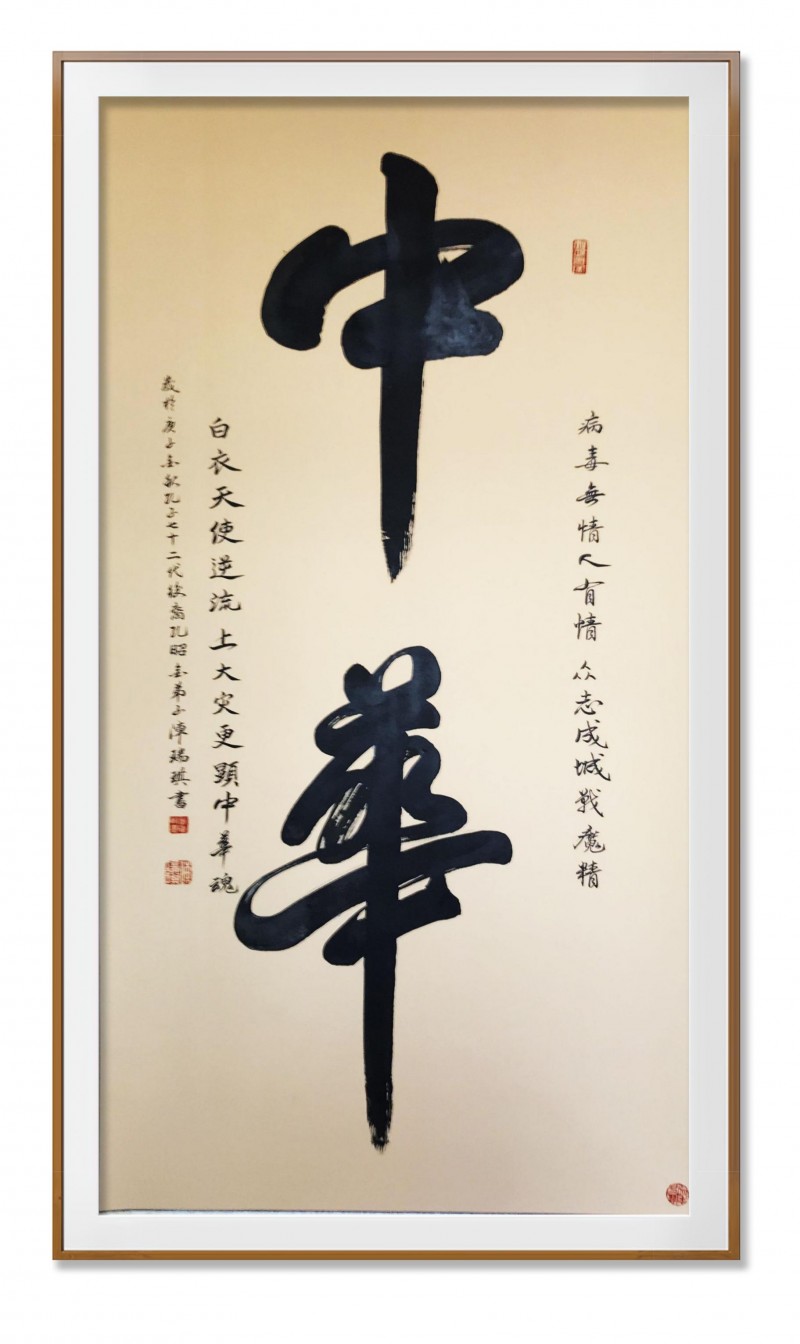 中華
病毒無情人有情众志成城戰魔精
白衣天使逆流上大灾更顯中華魂
歲於庚子金秋孔子七十二代後裔孔昭金弟子陳瑞琪書